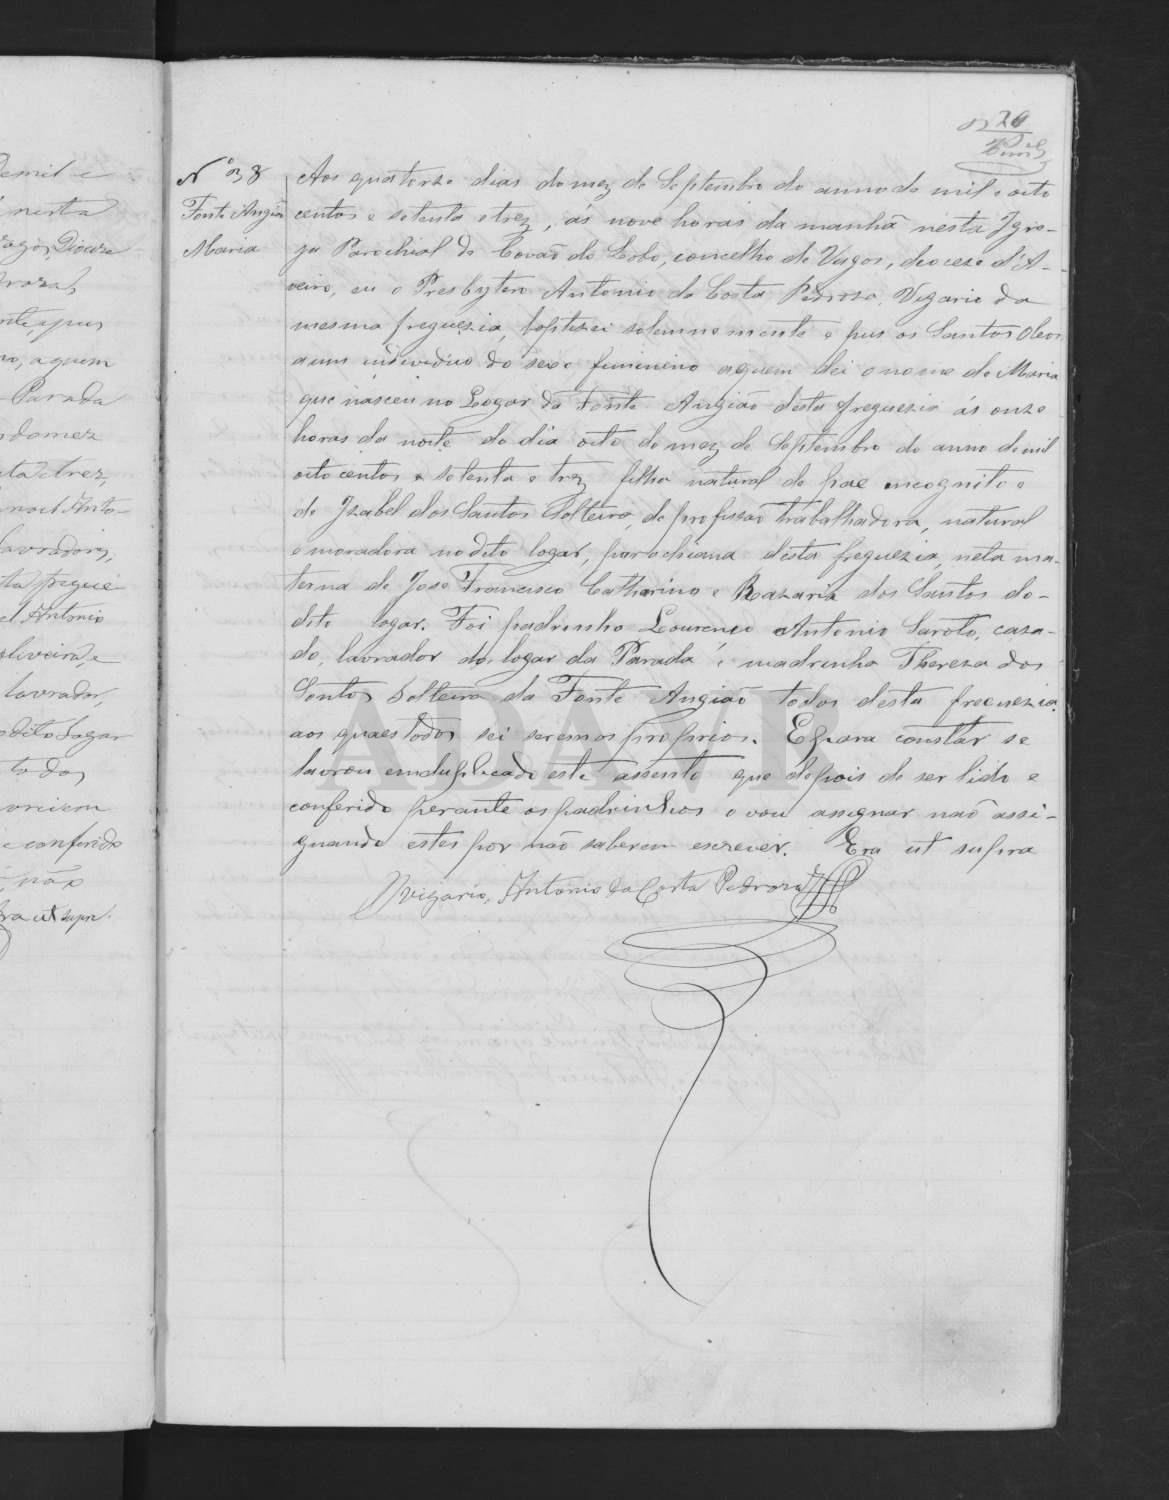 20
Nº 38
Fonte Angião
Maria
Aos quatorze dias do mez de Septembro do anno de mil e oito
centos e setenta e trez, ás nove horas da manhã nesta Igre-
ja Parochial do Covão do Lobo, concelho de Vagos, diocese d'A-
veiro, eu o Presbytero Antonio da Costa Pedroza, Vigario da
mesma freguezia, baptizei solemnemente e puz os Santos Oleos
a um individuo do sexo femineno a quem dei o nome de Maria
que nasceu no Logar da Fonte Angião desta freguezia ás onze
horas da noite do dia oito do mez de Septembro do anno de mil
oito centos e setenta e trez filha natural de pae incognito e
de Izabel dos Santos Solteira, de profissão trabalhadora, natural
e moradora no dito logar, parochiana desta freguezia, neta ma-
terna de Joze Francisco Catharino e Razaria dos Santos do-
dito logar. Foi padrinho Lourenço Antonio Saroto, caza-
do, lavrador do logar da Parada e madrinha Thereza dos
Santos Solteira da Fonte Angião todos desta freguezia.
aos quaes todos sei serem os proprios. E para constar se
lavrou em duplicado este assento que depois de ser lido e
conferido perante os padrinhos o vou assignar não assi-
gnando estes por não saberem escrever. Era ut supra
O Vigario, Antonio da Costa Pedroza
ADAVR